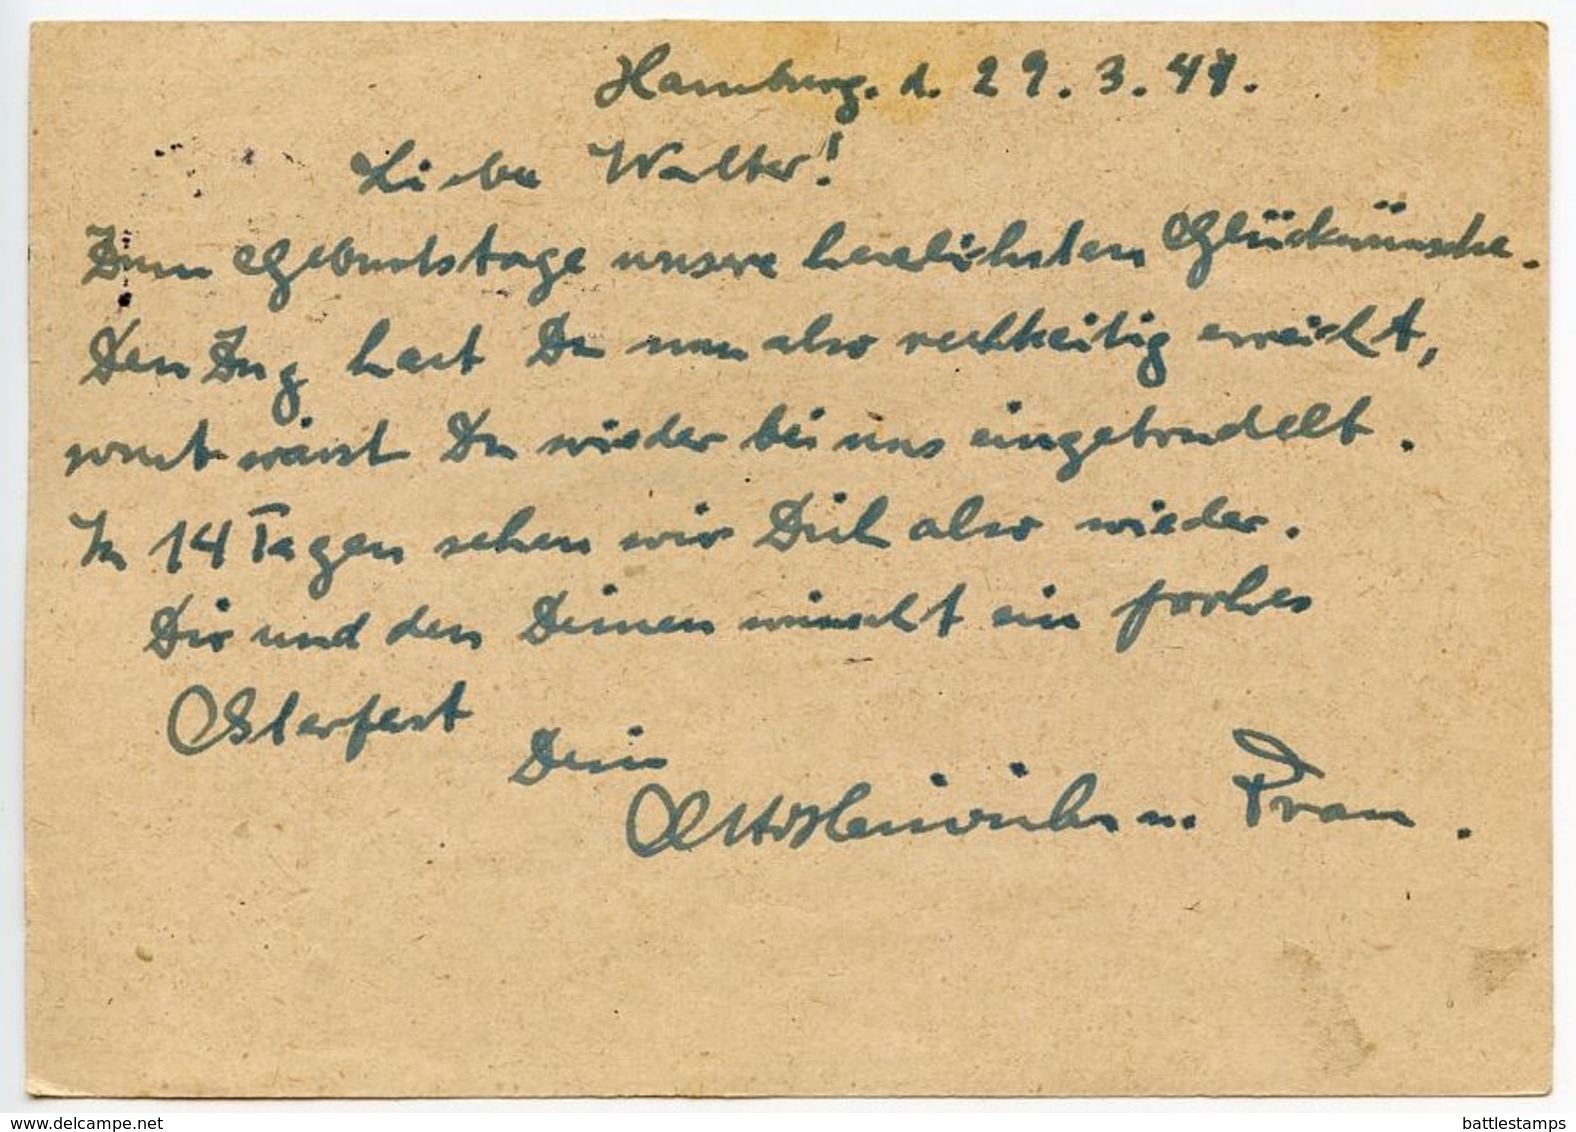 Hamburg. d. 29. 3. 47.
Lieber Walter!
Zum Geburtstage unsere herzlichsten Glückwünsche.
Den Zug hast Du nun also rechtzeitig erreicht,
sonst wärst Du wieder bei uns eingetrudelt.
In 14 Tagen sehen wir Dich also wieder.
Dir und den Deinen wünscht ein frohes
Osterfest
Dein
Otto Heinrich u. Frau.
delcampe.net
battlestamps